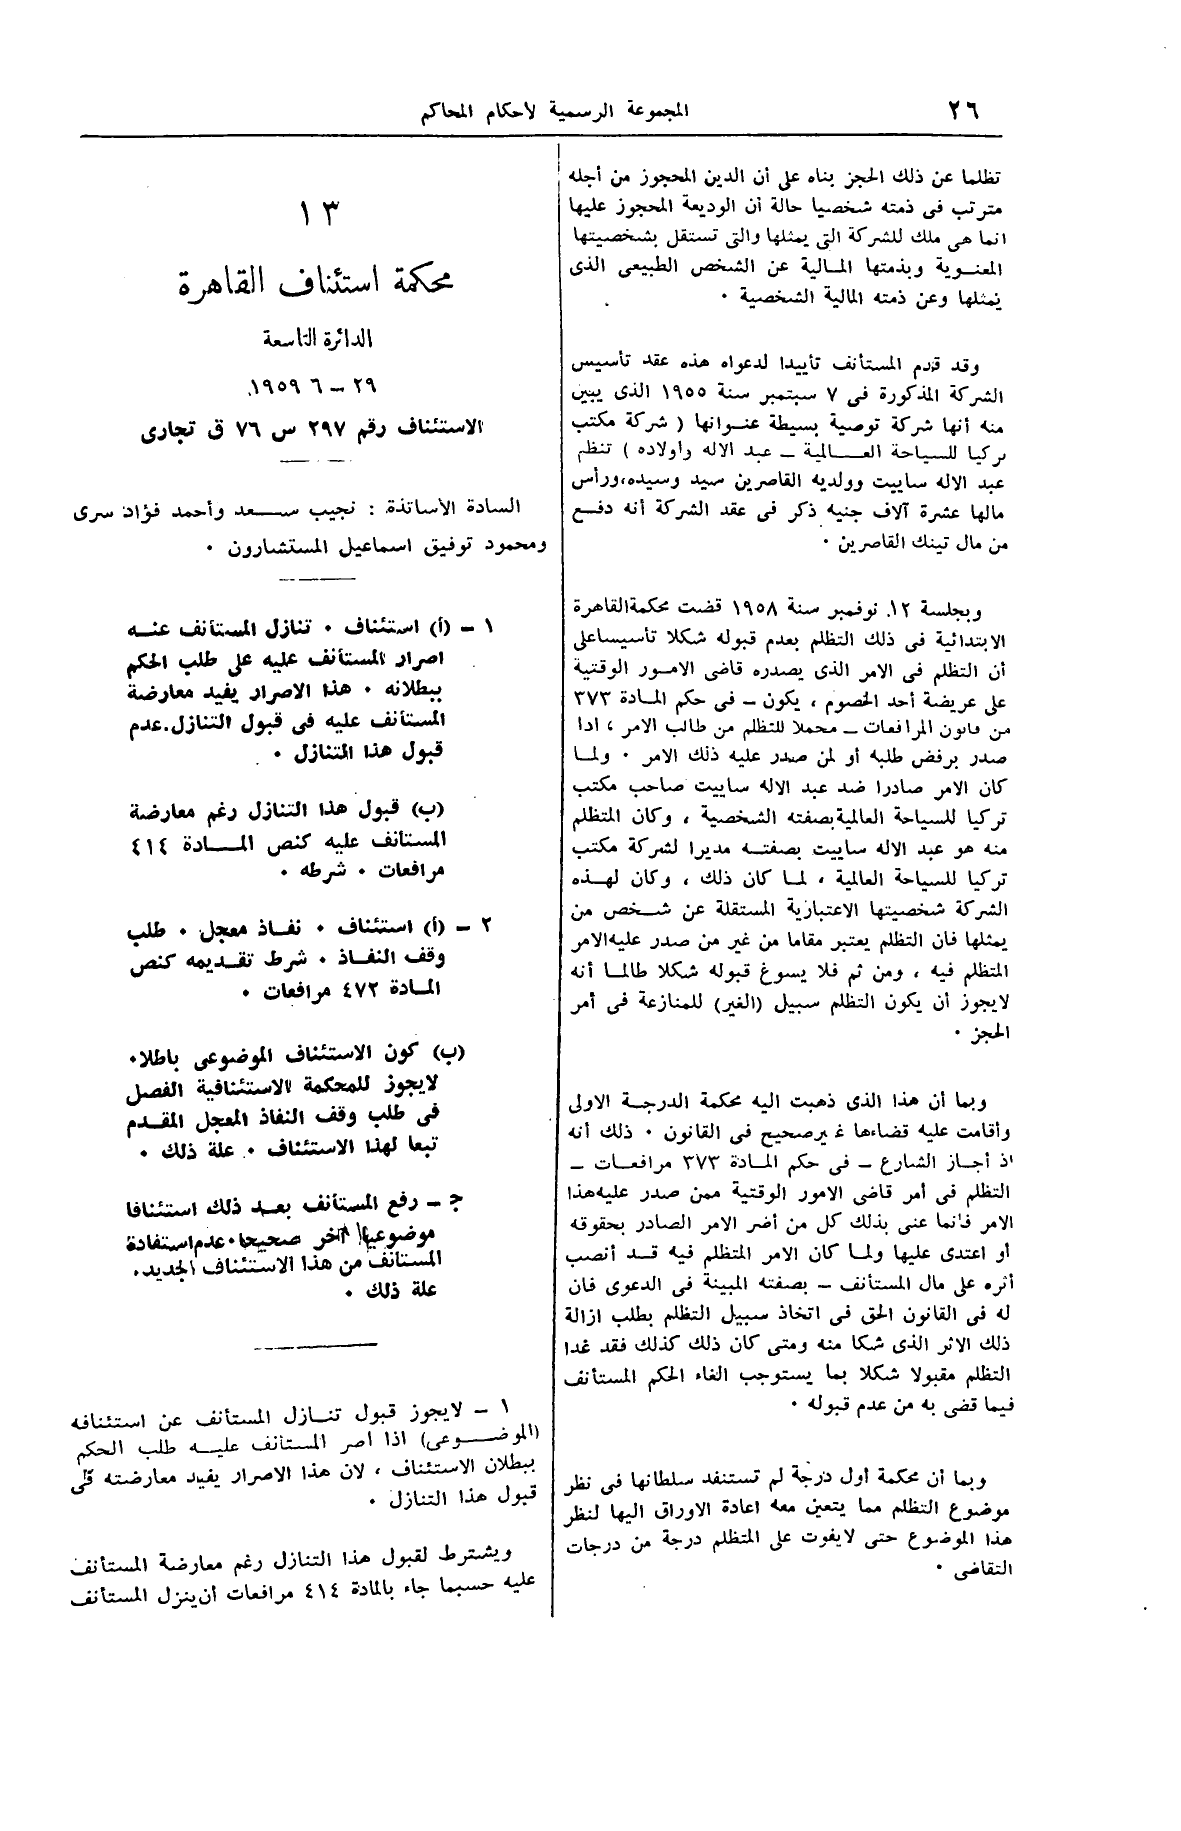 ٢٦
المجموعة الرسمية لأحكام المحاكم
تظلما عن ذلك الحجز بناه على أن الدين المحجوز من أجله
مترتب فى ذمته شخصيا حالة أن الوديعة المحجوز عليها
انما هى ملك للشركة التى يمثلها والتى تستقل بشخصيتها
المعنـوية وبذمتها المـالية عن الشخص الطبيعى الذى
يمثلها وعن ذمته المالية الشخصية ٠
وقد قدم المستأنف تأييدا لدعواه هذه عقد تأسيس
الشركة المذكورة فى ٧ سبتمبر سنة ١٩٥٥ الذى يبين
منه أنها شركة توصية بسيطة عنـوانها ( شركة مكتب
تركيا للسياحة العـــالمية ــ عبد الاله وأولاده ) تنظم
عبد الاله ساييت وولديه القاصرين سيد وسيده، ورأس
مالها عشرة آلاف جنيه ذكر فى عقد الشركة أنه دفـع
من مال تينك القاصرين ٠
وبجلسة ١٢ نوفمبر سنة ١٩٥٨ قضت محكمة القاهرة
الابتدائية فى ذلك التظلم بعدم قبوله شكلا تأسيسا على
أن التظلم فى الامر الذى يصدره قاضى الامـور الوقتية
على عريضة أحد الخصوم ، يكون ــ فى حكم المـادة ٣٧٣
من قانون المرافعات ــ محملا للتظلم من طالب الامر ، اذا
صدر برفض طلبه أو لمن صدر عليه ذلك الامر ٠ ولمـا
كان الامر صادرا ضد عبد الاله ساييت صاحب مكتب
تركيا للسياحة العالمية بصفته الشخصية ، وكان المتظلم
منه هو عبد الاله ساييت بصفتـه مديرا لشركة مكتب
تركيا للسياحة العالمية ، لمـا كان ذلك ، وكان لهـذه
الشركة شخصيتها الاعتبارية المستقلة عن شـخص من
يمثلها فان التظلم يعتبر مقاما من غير من صدر عليه الامر
المتظلم فيه ، ومن ثم فلا يسوغ قبوله شكلا طالمـا أنه
لايجوز أن يكون التظلم سبيل (الغير) للمنازعة فى أمر
الحجز ٠
وبما أن هذا الذى ذهبت اليه محكمة الدرجـة الاولى
وأقامت عليه قضاءها غير صحيح فى القانون ٠ ذلك أنه
اذ أجـاز الشارع ــ فى حكم المـادة ٣٧٣ مرافعـات ــ
التظلم فى أمر قاضى الامور الوقتية ممن صدر عليه هذا
الامر فانما عنى بذلك كل من أضر الامر الصادر بحقوقه
أو اعتدى عليها ولمـا كان الامر المتظلم فيه قـد أنصب
أثره على مال المستأنف ــ بصفته المبينة فى الدعوى فان
له فى القانون الحق فى اتخاذ سبيل التظلم بطلب ازالة
ذلك الاثر الذى شكا منه ومتى كان ذلك كذلك فقد غدا
التظلم مقبولا شكلا بما يستوجب الغاء الحكم المستأنف
فيما قضى به من عدم قبوله ٠
وبما أن محكمة أول درجة لم تستنفد سلطانها فى نظر
موضوع التظلم مما يتعين معه اعادة الاوراق اليها لنظر
هذا الموضوع حتى لايفوت على المتظلم درجة من درجات
التقاضى ٠
١٣
محكمة استئناف القاهرة
الدائرة التاسعة
٢٩ ــ ٦ ١٩٥٩
الاستئناف رقم ٢٩٧ س ٧٦ ق تجارى
السادة الأساتذة : نجيب سـعد وأحمد فؤاد سرى
ومحمود توفيق اسماعيل المستشارون ٠
١ ــ (أ) استئناف ٠ تنازل المستأنف عنـه
اصرار المستأنف عليه على طلب الحكم
ببطلانه ٠ هذا الاصرار يفيد معارضة
المستأنف عليه فى قبول التنازل. عدم
قبول هذا التنازل ٠
(ب) قبول هذا التنازل رغم معارضة
المستانف عليه كنص المــادة ٤١٤
مرافعات ٠ شرطه ٠
٢ ــ (أ) استئناف ٠ نفـاذ معجل ٠ طلب
وقف النفـاذ ٠ شرط تقـديمه كنص
المـادة ٤٧٢ مرافعات ٠
(ب) كون الاستئناف الموضوعى باطلا٠
لايجوز للمحكمة الاستئنافية الفصل
فى طلب وقف النفاذ المعجل المقـدم
تبعا لهذا الاستئناف ٠ علة ذلك ٠
جـ ــ رفع المستأنف بعـد ذلك استئنافا
موضوعيا آخر صحيحا٠ عدم استفادة
المستانف من هذا الاستئناف الجديد.
علة ذلك ٠
١ ــ لايجوز قبول تنـازل المستأنف عن استئنافه
(الموضــوعى) اذا اصر المستانف عليـه طلب الحكم
ببطلان الاستئناف ، لان هذا الاصرار يفيد معارضته فى
قبول هذا التنازل ٠
ويشترط لقبول هذا التنازل رغم معارضة المستأنف
عليه حسبما جاء بالمادة ٤١٤ مرافعات أن ينزل المستأنف